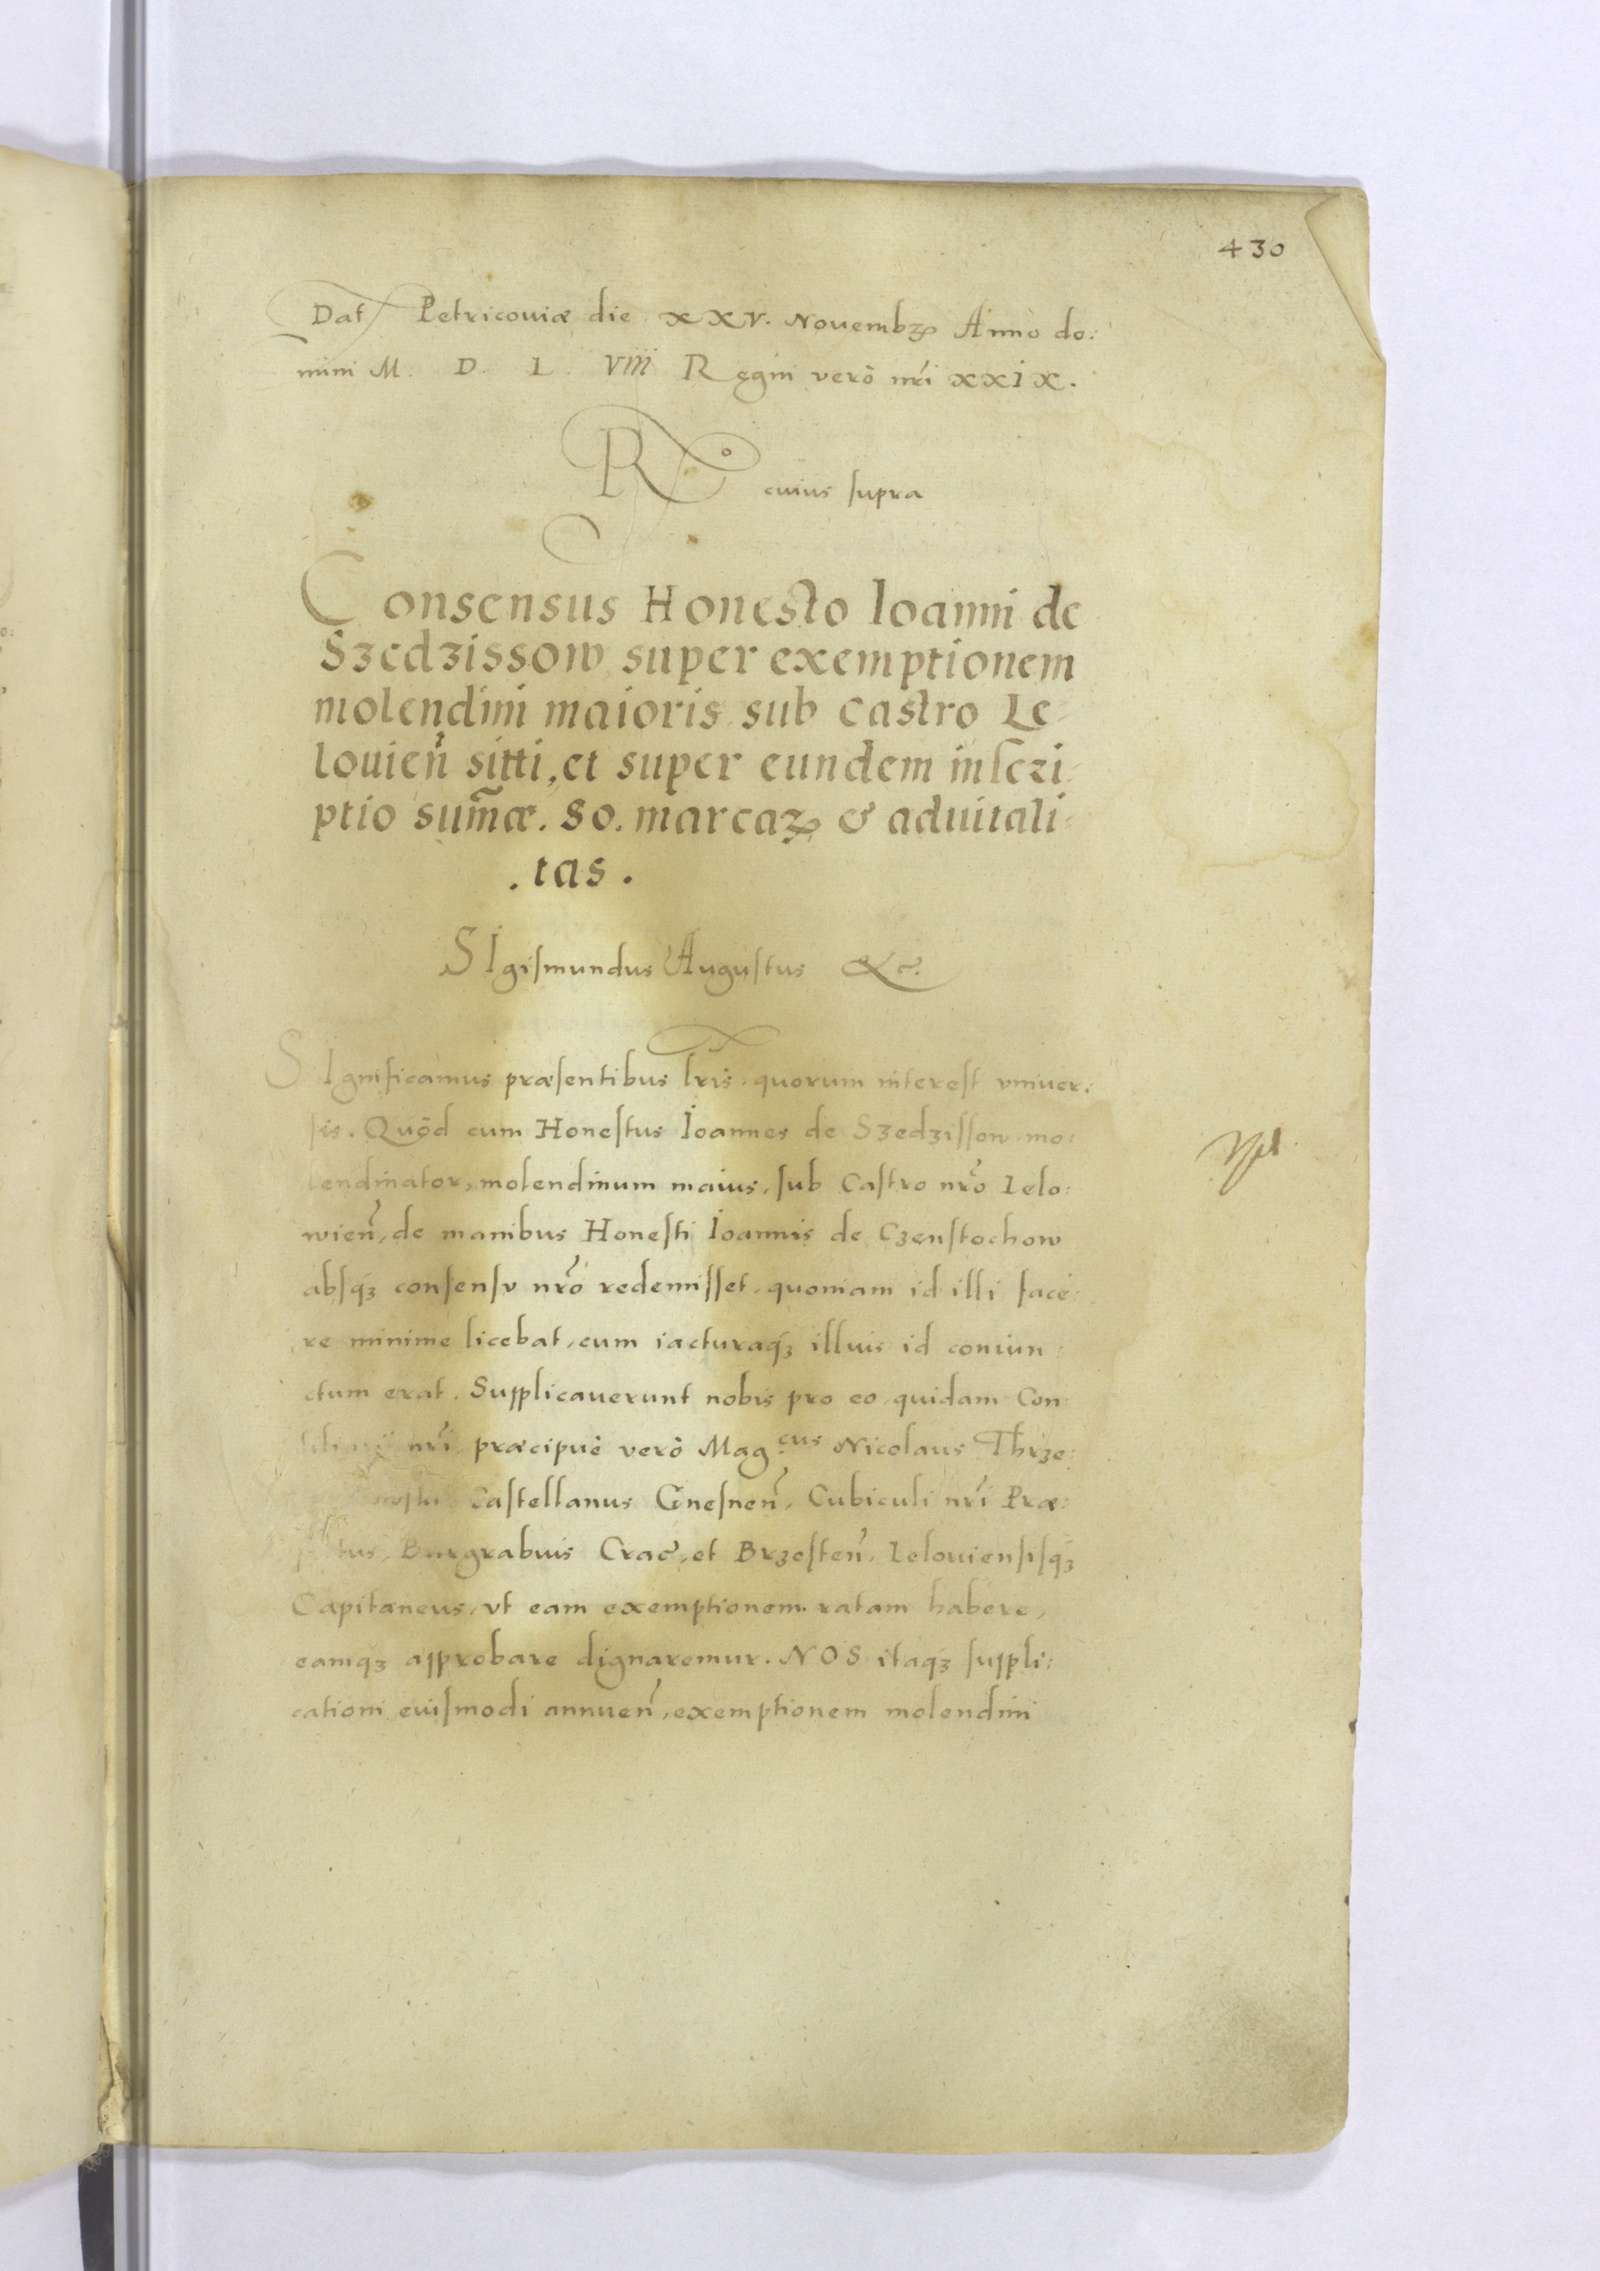 430
Dat Petricouiæ die XXV. Nouembꝝ Anno do:
mini M. D. L. VIII Regni verò nr̃i XXIX.
R° cuius supra
Consensus Honesto Ioanni de
Szedzissow super exemptionem
molendini maioris sub castro Le-
louien̄ sitti, et super eundem inscri-
ptio sum̄æ. 80. marcaꝝ & aduitali-
.tas.
SIgismundus Augustus &c.
SIgnificamus præsentibus lr̃is. quorum interest vniuer:
sis. Quòd cum Honestus Ioannes de Szedzissow mo:
lendinator, molendinum maius, sub Castro nr̃o Lelo:
wien̄, de manibus Honesti Ioannis de Czenstochow
absqꝫ consensv nr̃o redemisset, quoniam id illi face:
re minime licebat, cum iacturaqꝫ illius id coniun:
ctum erat. Supplicauerunt nobis pro eo quidam Con:
nr̃i præcipuè verò Mag.cus Nicolaus Thrze:
Castellanus Gnesnen̄, Cubiculi nr̃i Præ:
Burgrabius Crac̄, et Brzesten̄, Lelouiensisqꝫ
Capitaneus, vt eam exemptionem ratam habere,
eamqꝫ approbare dignaremur. NOS itaqꝫ suppli:
cationi euismodi annuen̄, exemptionem molendini